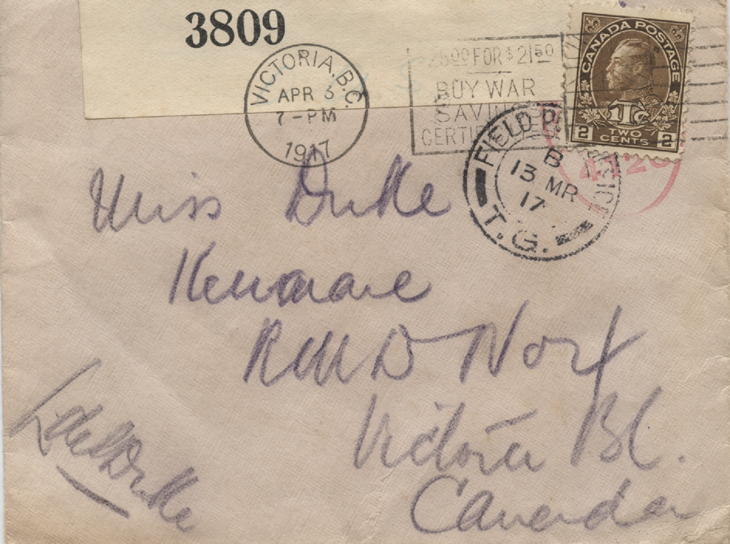 3809
VICTORIA, B.C.
APR 6
7-PM
1917
$25.00 FOR $21.50
BUY WAR
SAVINGS
CERTIFICATES
CANADA POSTAGE
1Tc
2 TWO CENTS 2
FIELD POST OFFICE
B
13 MR
17
T.G.
Miss Duke
Kenmare
RMD No 4
Victoria BC.
Canada